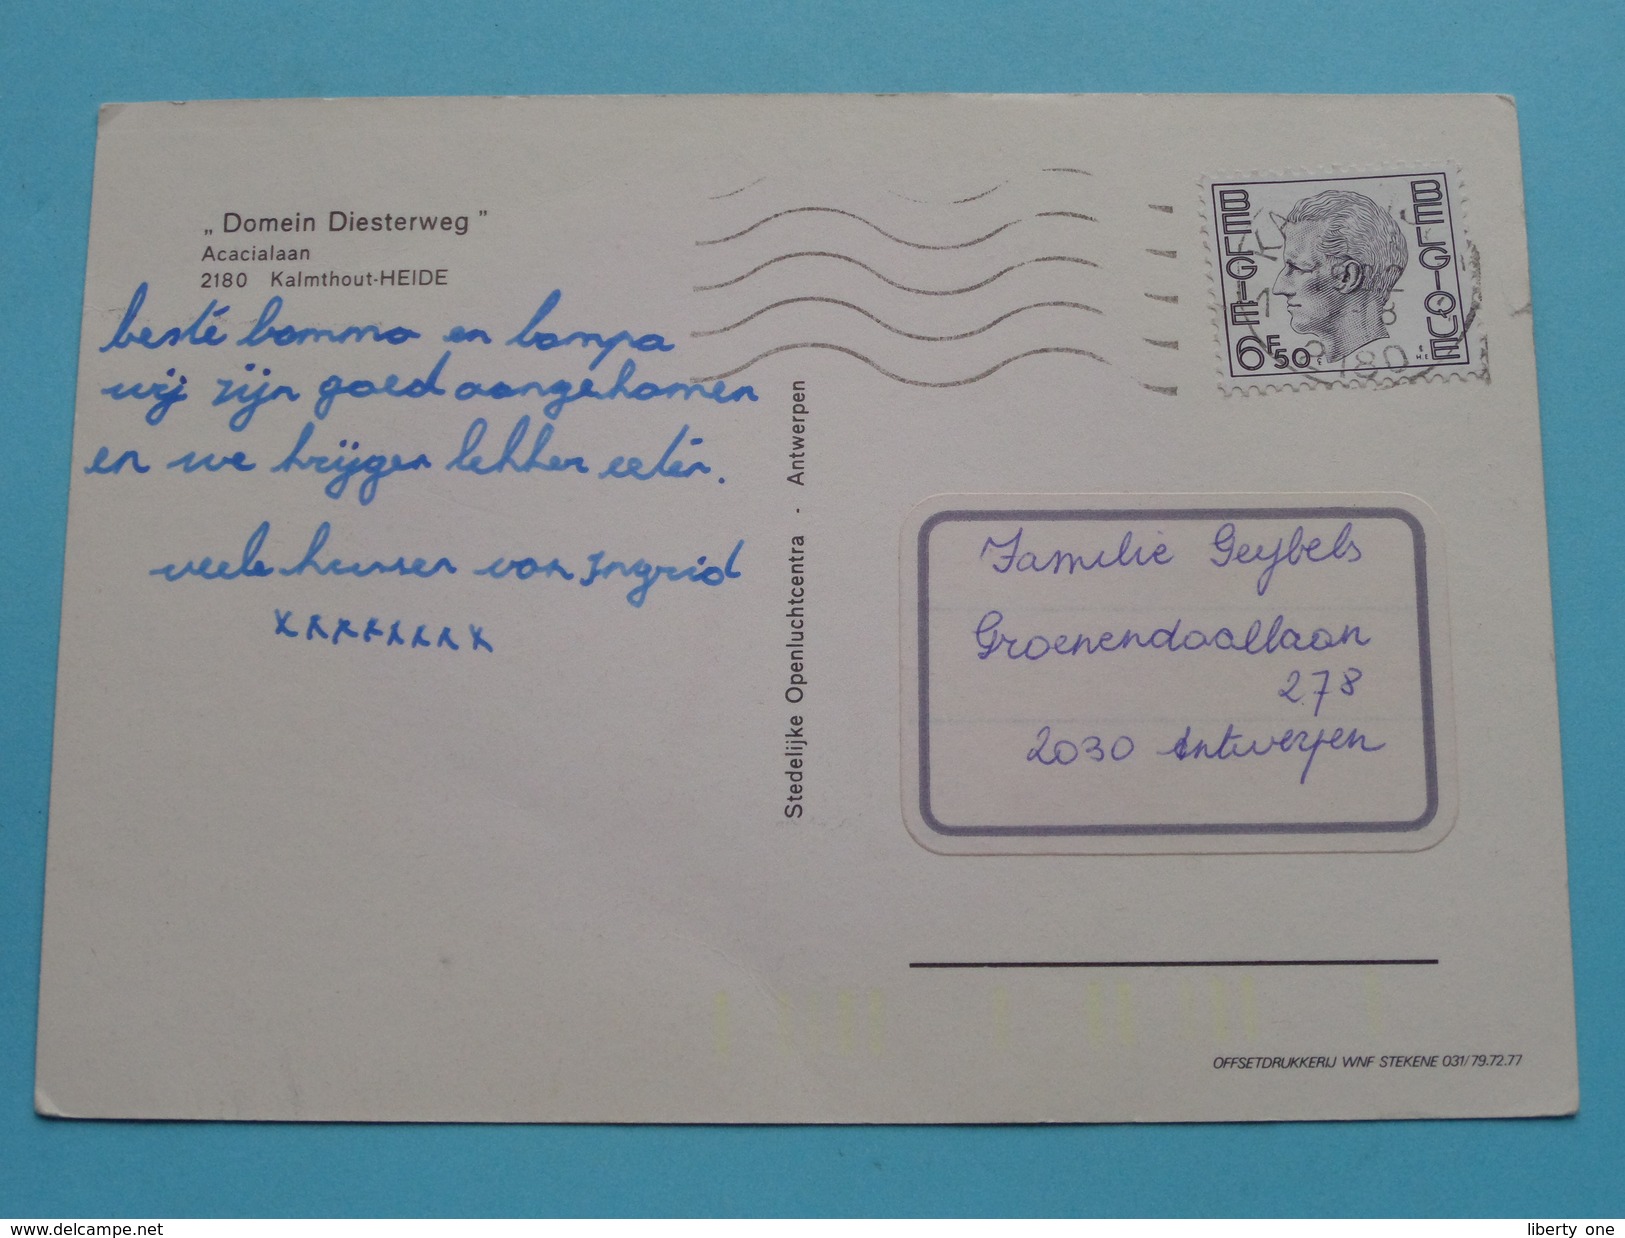 „ Domein Diesterweg ”
Acacialaan
2180 Kalmthout-HEIDE
beste bomma en bompa
wij zijn goed aangekomen
en we krijgen lekker eten.
veele kussen van Ingrid
xxxxxxxx
Stedelijke Openluchtcentra - Antwerpen
BELGIE BELGIQUE
6F50
2180
Familie Geybels
Groenendaallaan
278
2030 Antwerpen
OFFSETDRUKKERIJ WNF STEKENE 031/79.72.77
www.delcampe.net
liberty one